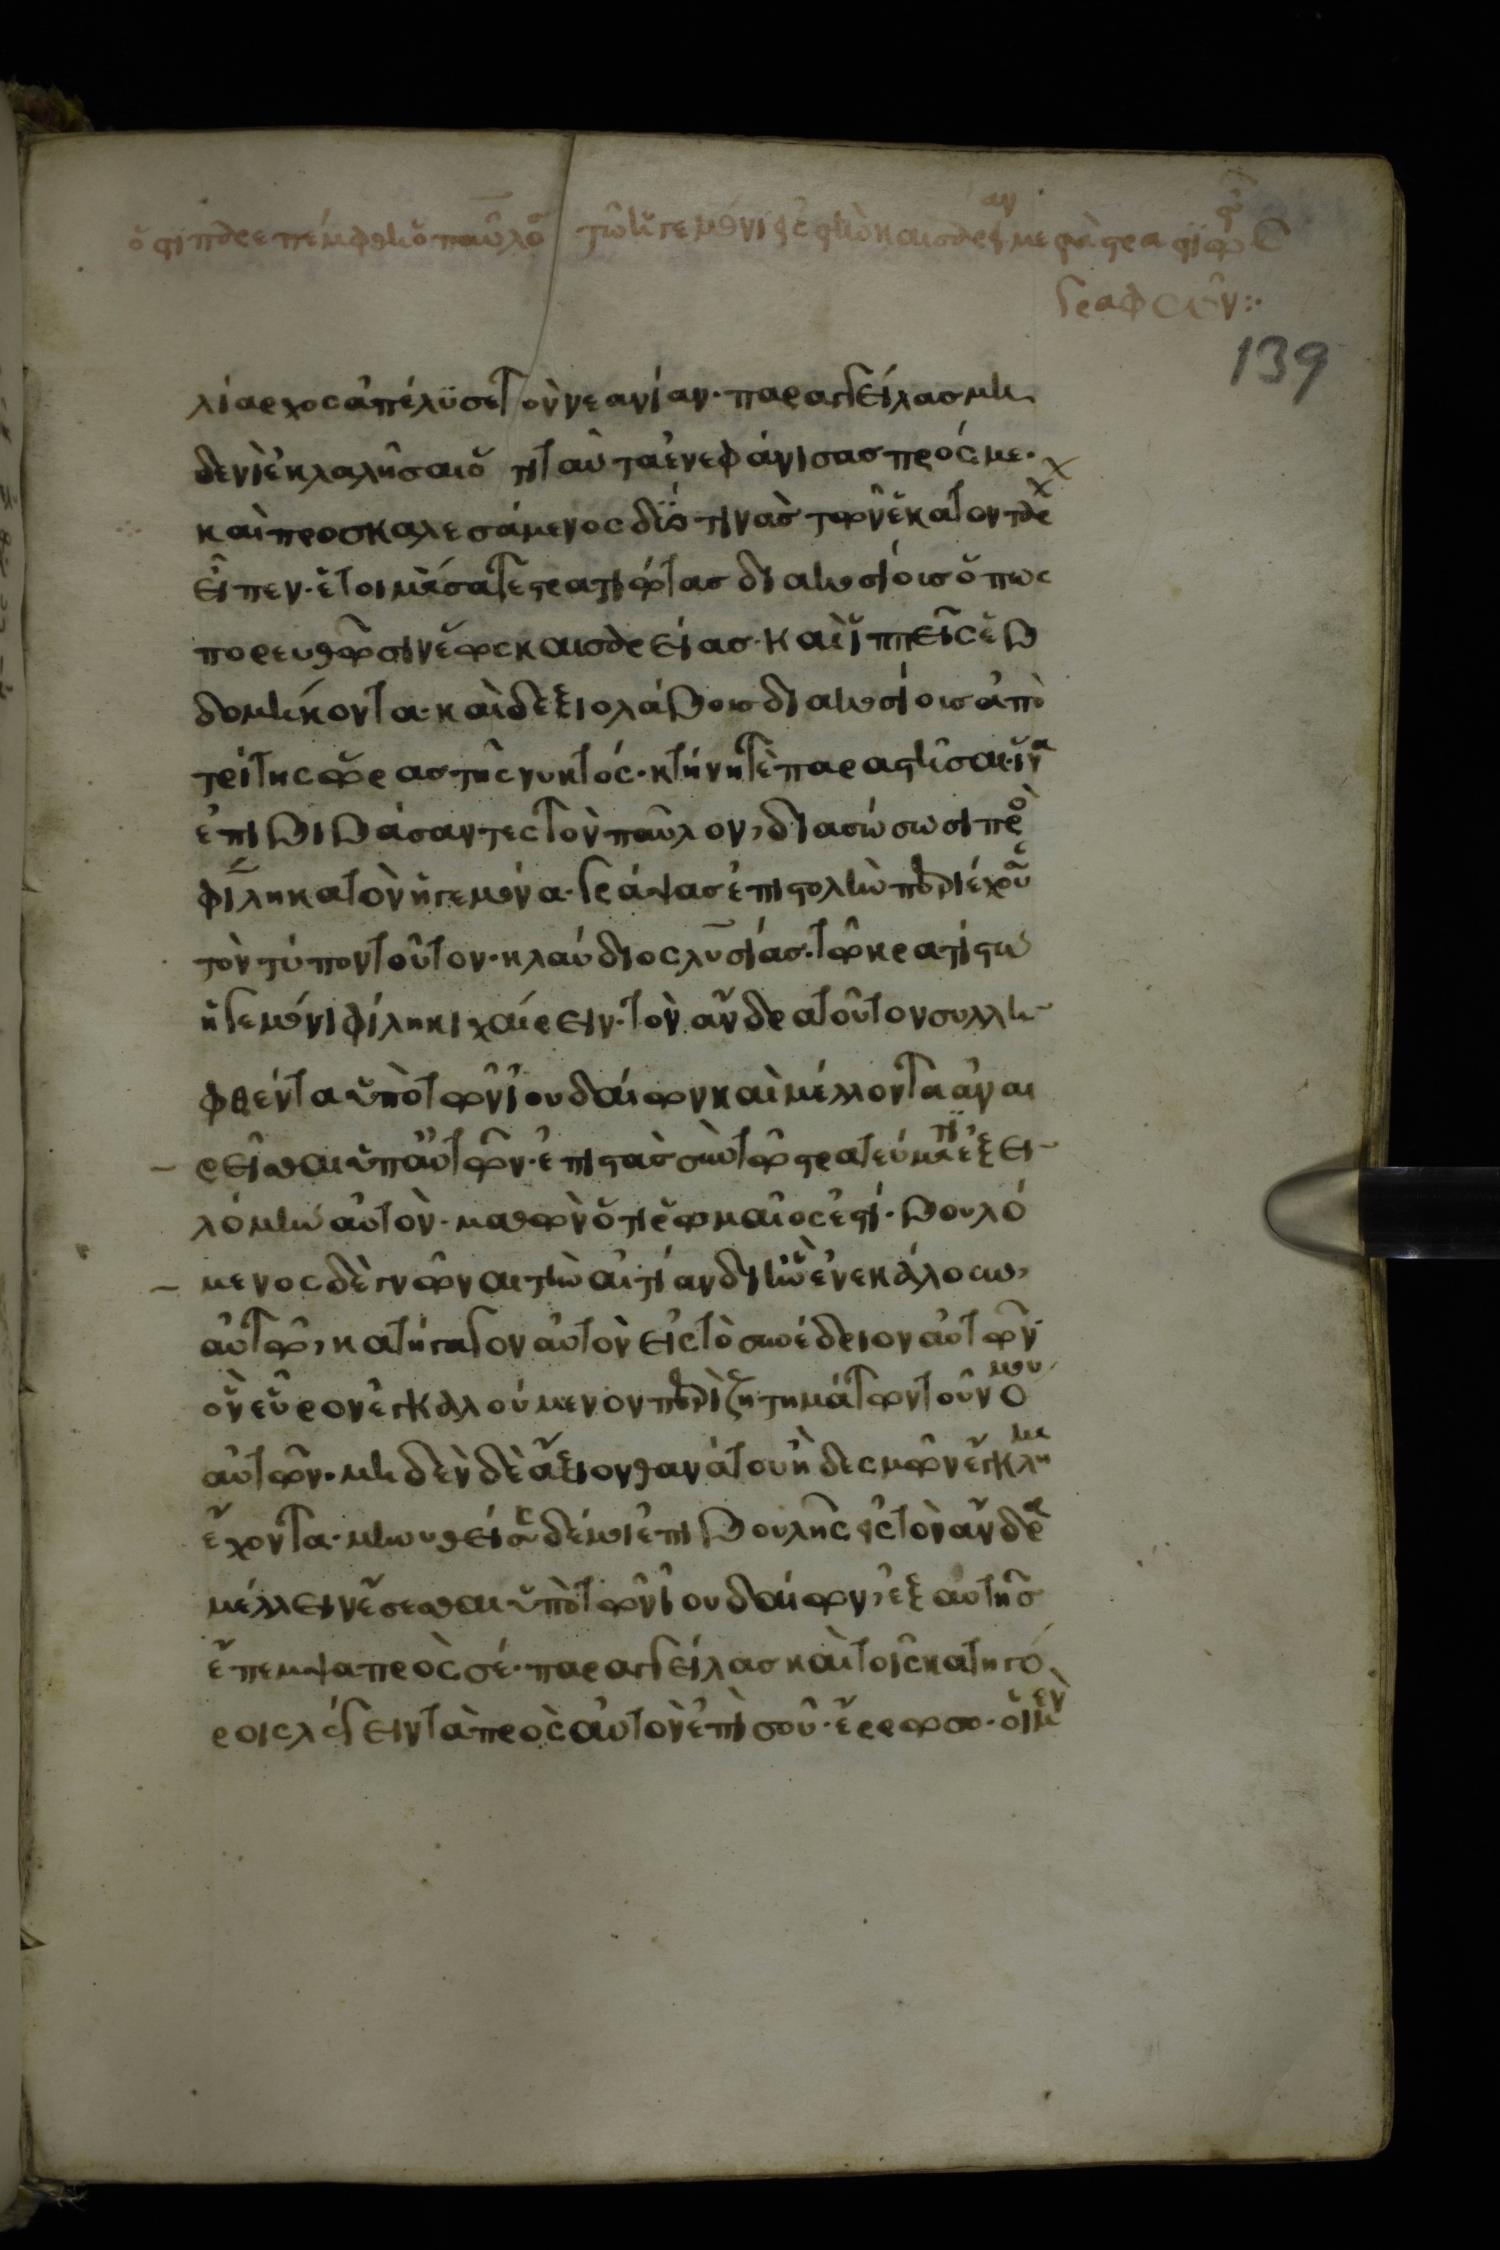 ὅτι παρεπέμφθη ὁ παῦλο τῶ ἡγεμόνι ἐς τὴν καισάρειαν μετὰ στρατιωτῶ
γραφ
139
λίαρχος ἀπέλϋσε τὸν νεανίαν· παραγγείλας μη
δενὶ ἐκλαλῆσαι ὅτι ταῦτα ἐνεφάνισας πρός με·
καὶ προσκαλεσάμενος δϋό τινὰς τῶν ἑκατοντάρχ
εἶπεν· ἑτοιμάσατε στρατιώτας διακοσίοις ὅπως
πορευθῶσιν ἕως καισαρείας· καὶ ἱππεῖς ἑβ
δομήκοντα· καὶ δεξιολάβοις διακοσίοις ἀπὸ
τρίτης ὥρας τῆς νυκτός· κτήνη τὲ παραστῆσαι· ἵνα
ἐπιβιβάσαντες τὸν παῦλον, διασώσωσι πρὸ
φίληκα τὸν ἡγεμόνα· γράψας ἐπιστολὴν περιέχου
τὸν τύπον τοῦτον· κλαύδιος λυσίας· τῶ κρατίστω
ἡγεμόνι φίληκι χαίρειν· τὸν ἄνδρα τοῦτον συλλη
φθέντα ὑπὸ τῶν ἰουδαίων καὶ μέλλοντα ἀναι
ρεῖσθαι ὑπ αὐτῶν· ἐπιστὰς σὺν τῶ στρατεύματι ἐξει
λόμην αὐτὸν· μαθὼν ὅτι ῥωμαῖος ἐστί· βουλό
μενος δὲ γνῶναι τὴν αἰτίαν δι ἣν ἐνεκάλουν,
αὐτῶ, κατήγαγον αὐτὸν εἰς τὸ συνέδριον αὐτῶν
ὃν εὗρον ἐγκαλούμενον περὶ ζητημάτων τοῦ νόμου
αὐτῶν· μηδὲν δὲ ἄξιον θανάτου ἢ δεσμῶν ἔγκλημα
ἔχοντα· μηνυθείσης δέ μοι ἐπιβουλῆς εἰς τὸν ἄνδρα
μέλλειν ἔσεσθαι ὑπὸ τῶν ἰουδαίων, ἐξ αὐτῆς
ἔπεμψα πρὸς σέ· παραγγείλας καὶ τοῖς κατηγό
ροις λέγειν τὰ πρὸς αὐτὸν ἐπὶ σοῦ· ἔρρωσο· οἱ μὲν